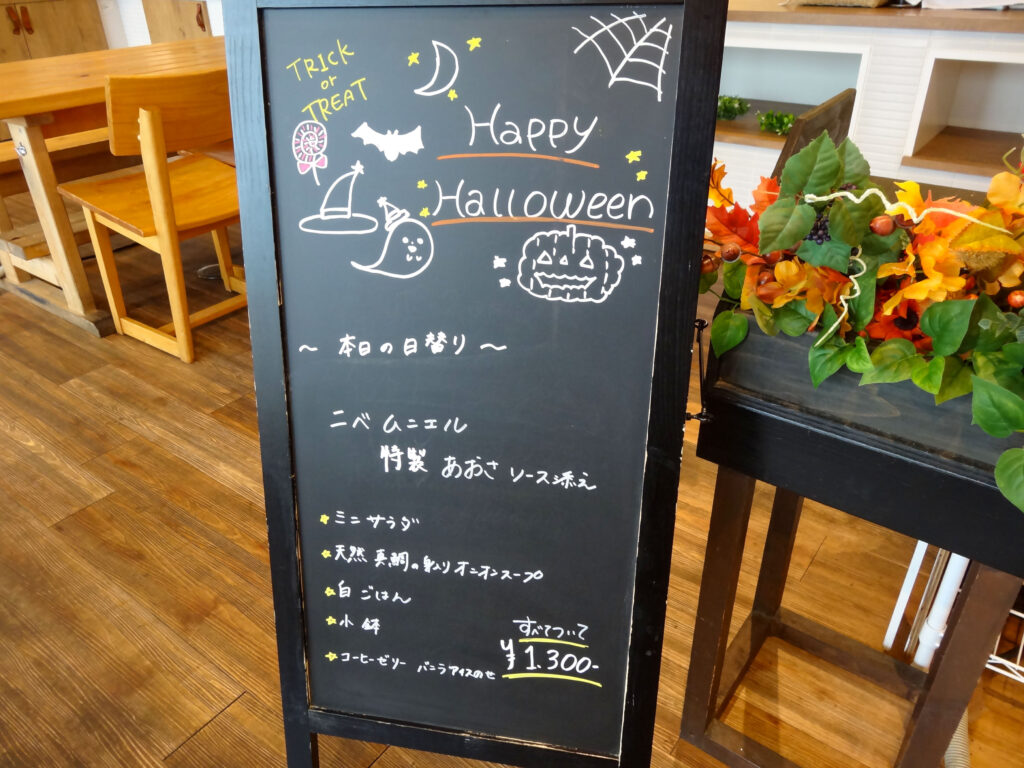 TRICK
or
TREAT
Happy
Halloween
～ 本日の日替り ～
ニベ ムニエル
特製 あおさ ソース添え
ミニサラダ
天然 真鯛の身入りオニオンスープ
白ごはん
小鉢
コーヒーゼリー バニラアイスのせ
すべてついて
¥1.300-